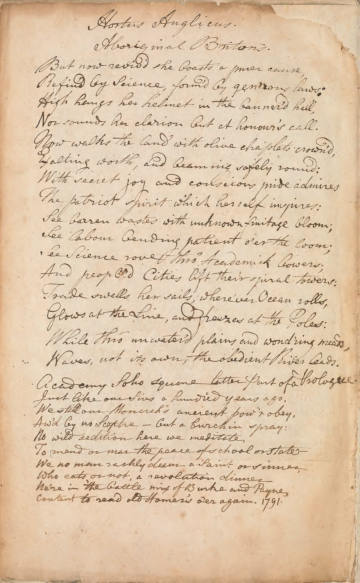 Hortus Anglicus.
Aboriginal Briton.
But now reviv'd she boasts a purer cause,
Refin'd by Science, form'd by gen'rous laws:
High hangs her helmet in the banner'd hall
Nor sounds her clarion but at honour's call.
Now walks the land with olive chaplets crown'd,
Exalting worth, and beaming safety round:
With secret joy and conscious pride admires
The patriot spirit which herself inspires:
See barren wastes with unknown fruitage bloom;
See Labour bending patient o'er the loom;
See Science rove thro' Academick bowers
And peopled Cities lift their spiral towers.
Trade swells her sails, wherever Ocean rolls,
Glows at the Line, and freezes at the Poles:
While thro' unwater'd plains and wond'ring meads,
Waves, not its own, the obedient River leads.
Academy Soho square latter Part of a Prologue
Just like our Sires a hundred years ago.
We still our Monarch's ancient pow'r obey.
Aw'd by no Sceptre - but a birchin spray:
No wild sedition here we meditate
To mend or mar the peace of school or state
We no man rashly deem a Saint or sinner,
Who eats or not, a revolution dinner
Here in the battle mix of Burke and Payne,
Content to read old Homer's o'er again. 1791.